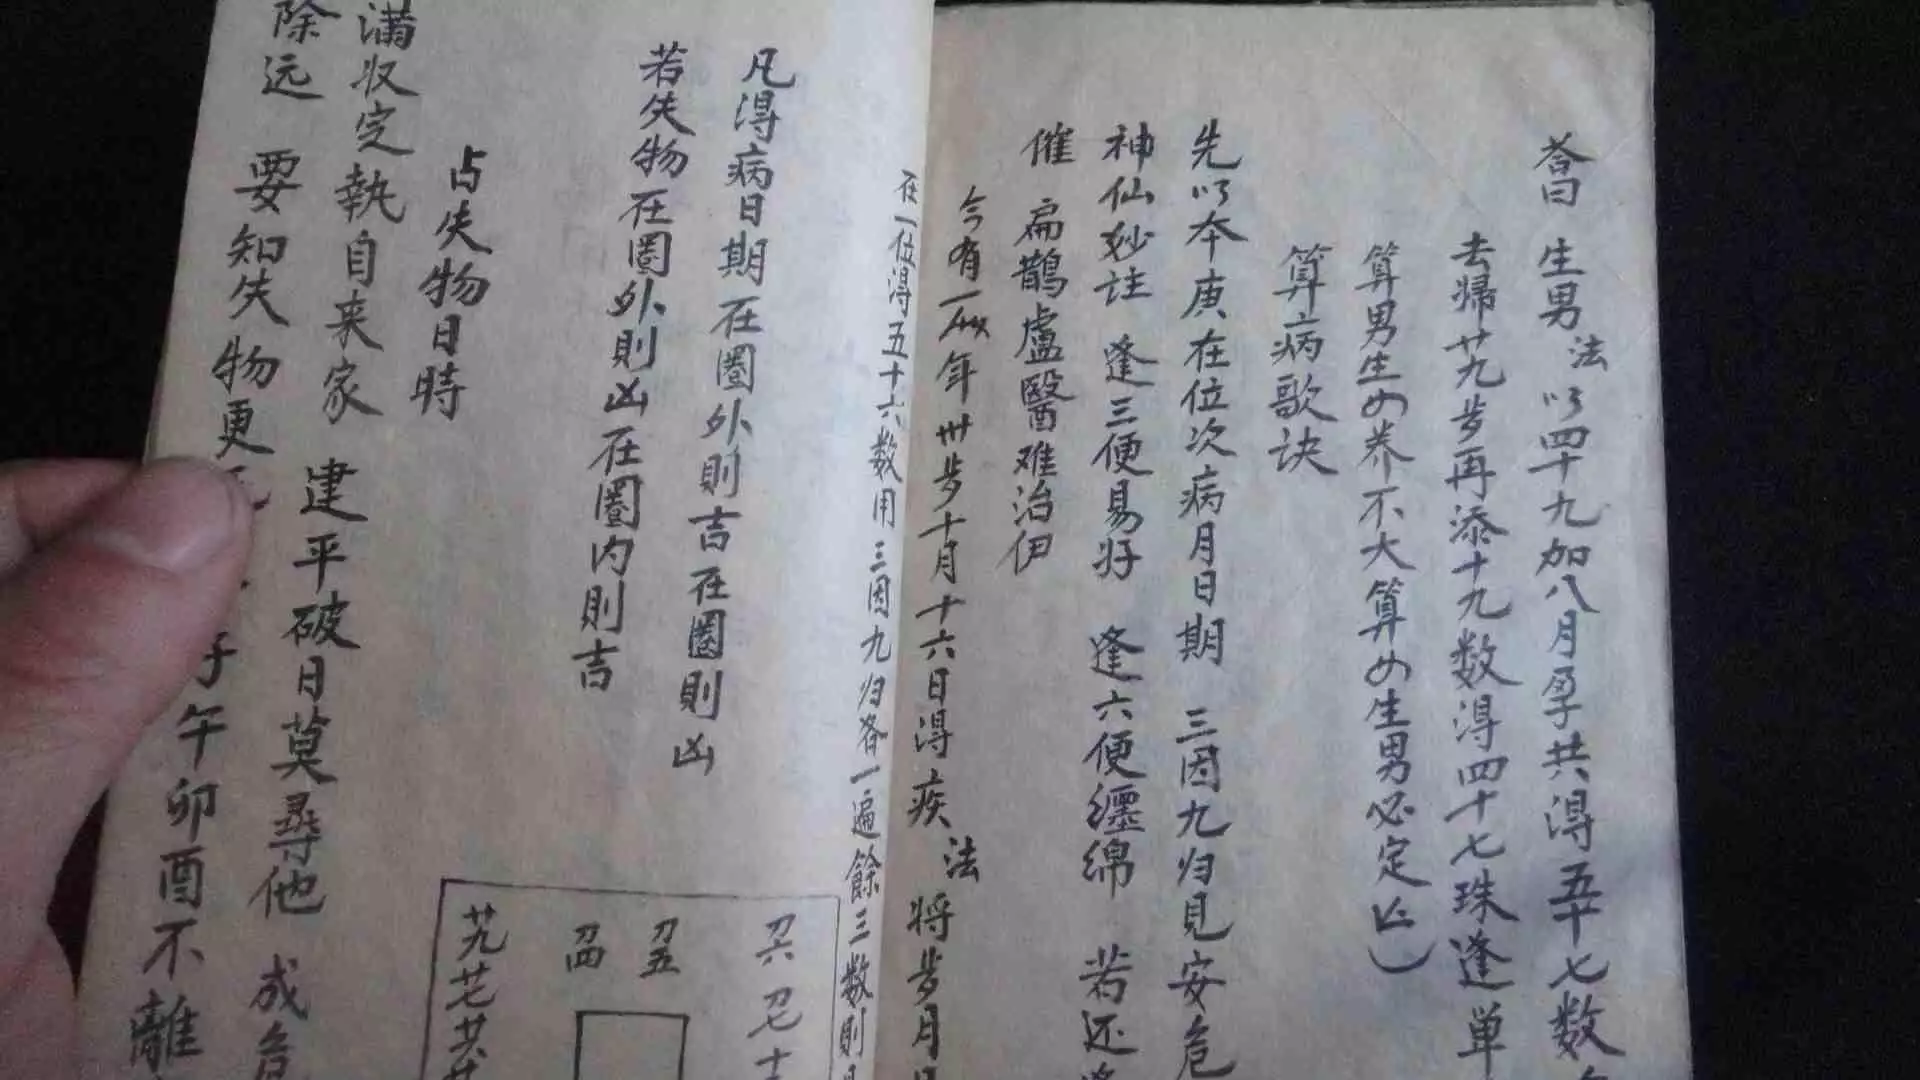 荅曰 生男 法 以四十九加八月孕共得五十七数
去帰廿九岁再添十九数得四十七珠逢单
算男生女养不大算女生男必定亡
算病歌诀
先以本庚在位次病月日期 三因九归見安危
神仙妙诀 逢三便易好 逢六便纏绵 若还
催 扁鹊盧醫难治伊
今有一 年卅岁十月十六日得疾 法 将岁月日
在一位得五十六数用三因九归各一遍餘三数則
凡得病日期在圏外則吉在圏則凶
若失物在圏外則凶在圏内則吉
刀六 刀七
刀五
刀四
廿九 廿七
占失物日時
满收定執自来家 建平破日莫尋他 成危
除远 要知失物更 子午卯酉不離